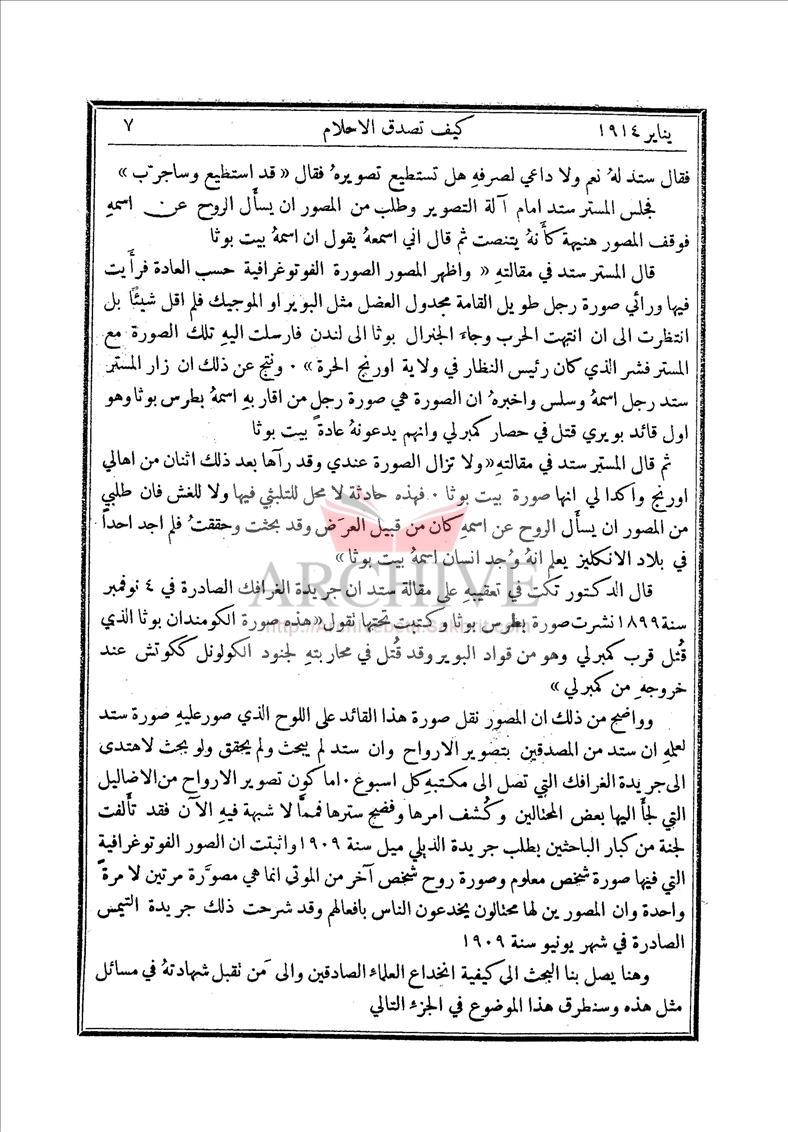 يناير ١٩١٤
كيف تصدق الاحلام
٧
فقال ستد لهُ نعم ولا داعي لصرفهِ هل تستطيع تصويرهُ فقال « قد استطيع وساجرّب »
فجلس المستر ستد امام آلة التصوير وطلب من المصور ان يسأل الروح عن اسمهِ
فوقف المصور هنيهة كأنهُ يتنصت ثم قال اني اسمعهُ يقول ان اسمهُ بيت بوثا
قال المستر ستد في مقالتهِ « واظهر المصور الصورة الفوتوغرافية حسب العادة فرأيت
فيها ورائي صورة رجل طويل القامة مجدول العضل مثل البوير او الموجيك فلم اقل شيئًا بل
انتظرت الى ان انتهت الحرب وجاء الجنرال بوثا الى لندن فارسلت اليهِ تلك الصورة مع
المستر فشر الذي كان رئيس النظار في ولاية اورنج الحرة » ٠ ونتج عن ذلك ان زار المستر
ستد رجل اسمهُ وسلس واخبرهُ ان الصورة هي صورة رجل من اقاربهِ اسمهُ بطرس بوثا وهو
اول قائد بويري قتل في حصار كمبرلي وانهم يدعونهُ عادةً بيت بوثا
ثم قال المستر ستد في مقالتهِ «ولا تزال الصورة عندي وقد رآها بعد ذلك اثنان من اهالي
اورنج واكدا لي انها صورة بيت بوثا ٠ فهذه حادثة لا محل للتلبثي فيها ولا للغش فان طلبي
من المصور ان يسأل الروح عن اسمهِ كان من قبيل العرَض وقد بحثت وحققتُ فلم اجد احداً
في بلاد الانكليز يعلم انهُ وُجد انسان اسمهُ بيت بوثا »
قال الدكتور تكت في تعقيبهِ على مقالة ستد ان جريدة الغرافك الصادرة في ٤ نوفمبر
سنة ١٨٩٩ نشرت صورة بطرس بوثا وكتبت تحتها تقول «هذه صورة الكومندان بوثا الذي
قُتل قرب كمبرلي وهو من قواد البوير وقد قُتل في محاربتهِ لجنود الكولونل ككوتش عند
خروجهِ من كمبرلي »
وواضح من ذلك ان المصور نقل صورة هذا القائد على اللوح الذي صور عليهِ صورة ستد
لعلمهِ ان ستد من المصدقين بتصوير الارواح وان ستد لم يبحث ولم يحقق ولو بحث لاهتدى
الى جريدة الغرافك التي تصل الى مكتبهِ كل اسبوع ٠ اما كون تصوير الارواح من الاضاليل
التي لجأ اليها بعض المحتالين وكُشف امرها وفضح سترها فممَّا لا شبهة فيهِ الآن فقد تألفت
لجنة من كبار الباحثين بطلب جريدة الديلي ميل سنة ١٩٠٩ واثبتت ان الصور الفوتوغرافية
التي فيها صورة شخص معلوم وصورة روح شخص آخر من الموتى انما هي مصوَّرة مرتين لا مرةً
واحدة وان المصورين لها محتالون يخدعون الناس بافعالهم وقد شرحت ذلك جريدة التيمس
الصادرة في شهر يونيو سنة ١٩٠٩
وهنا يصل بنا البحث الى كيفية انخداع العلماء الصادقين والى مَن تقبل شهادتهُ في مسائل
مثل هذه وسنطرق هذا الموضوع في الجزء التالي
ARCHIVE